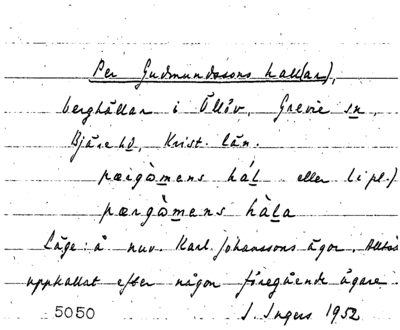 Per Gudmundssons hall(ar),
berghällar i Ällöv, Grevie sn,
Bjäre hd, Krist. län.
pærgòmens hál eller (i pl.)
pærgòmens hàla
Läge: å nuv. Karl Johanssons ägor. Alltså
uppkallat efter någon föregående ägare.
5050 I. Ingers 1952